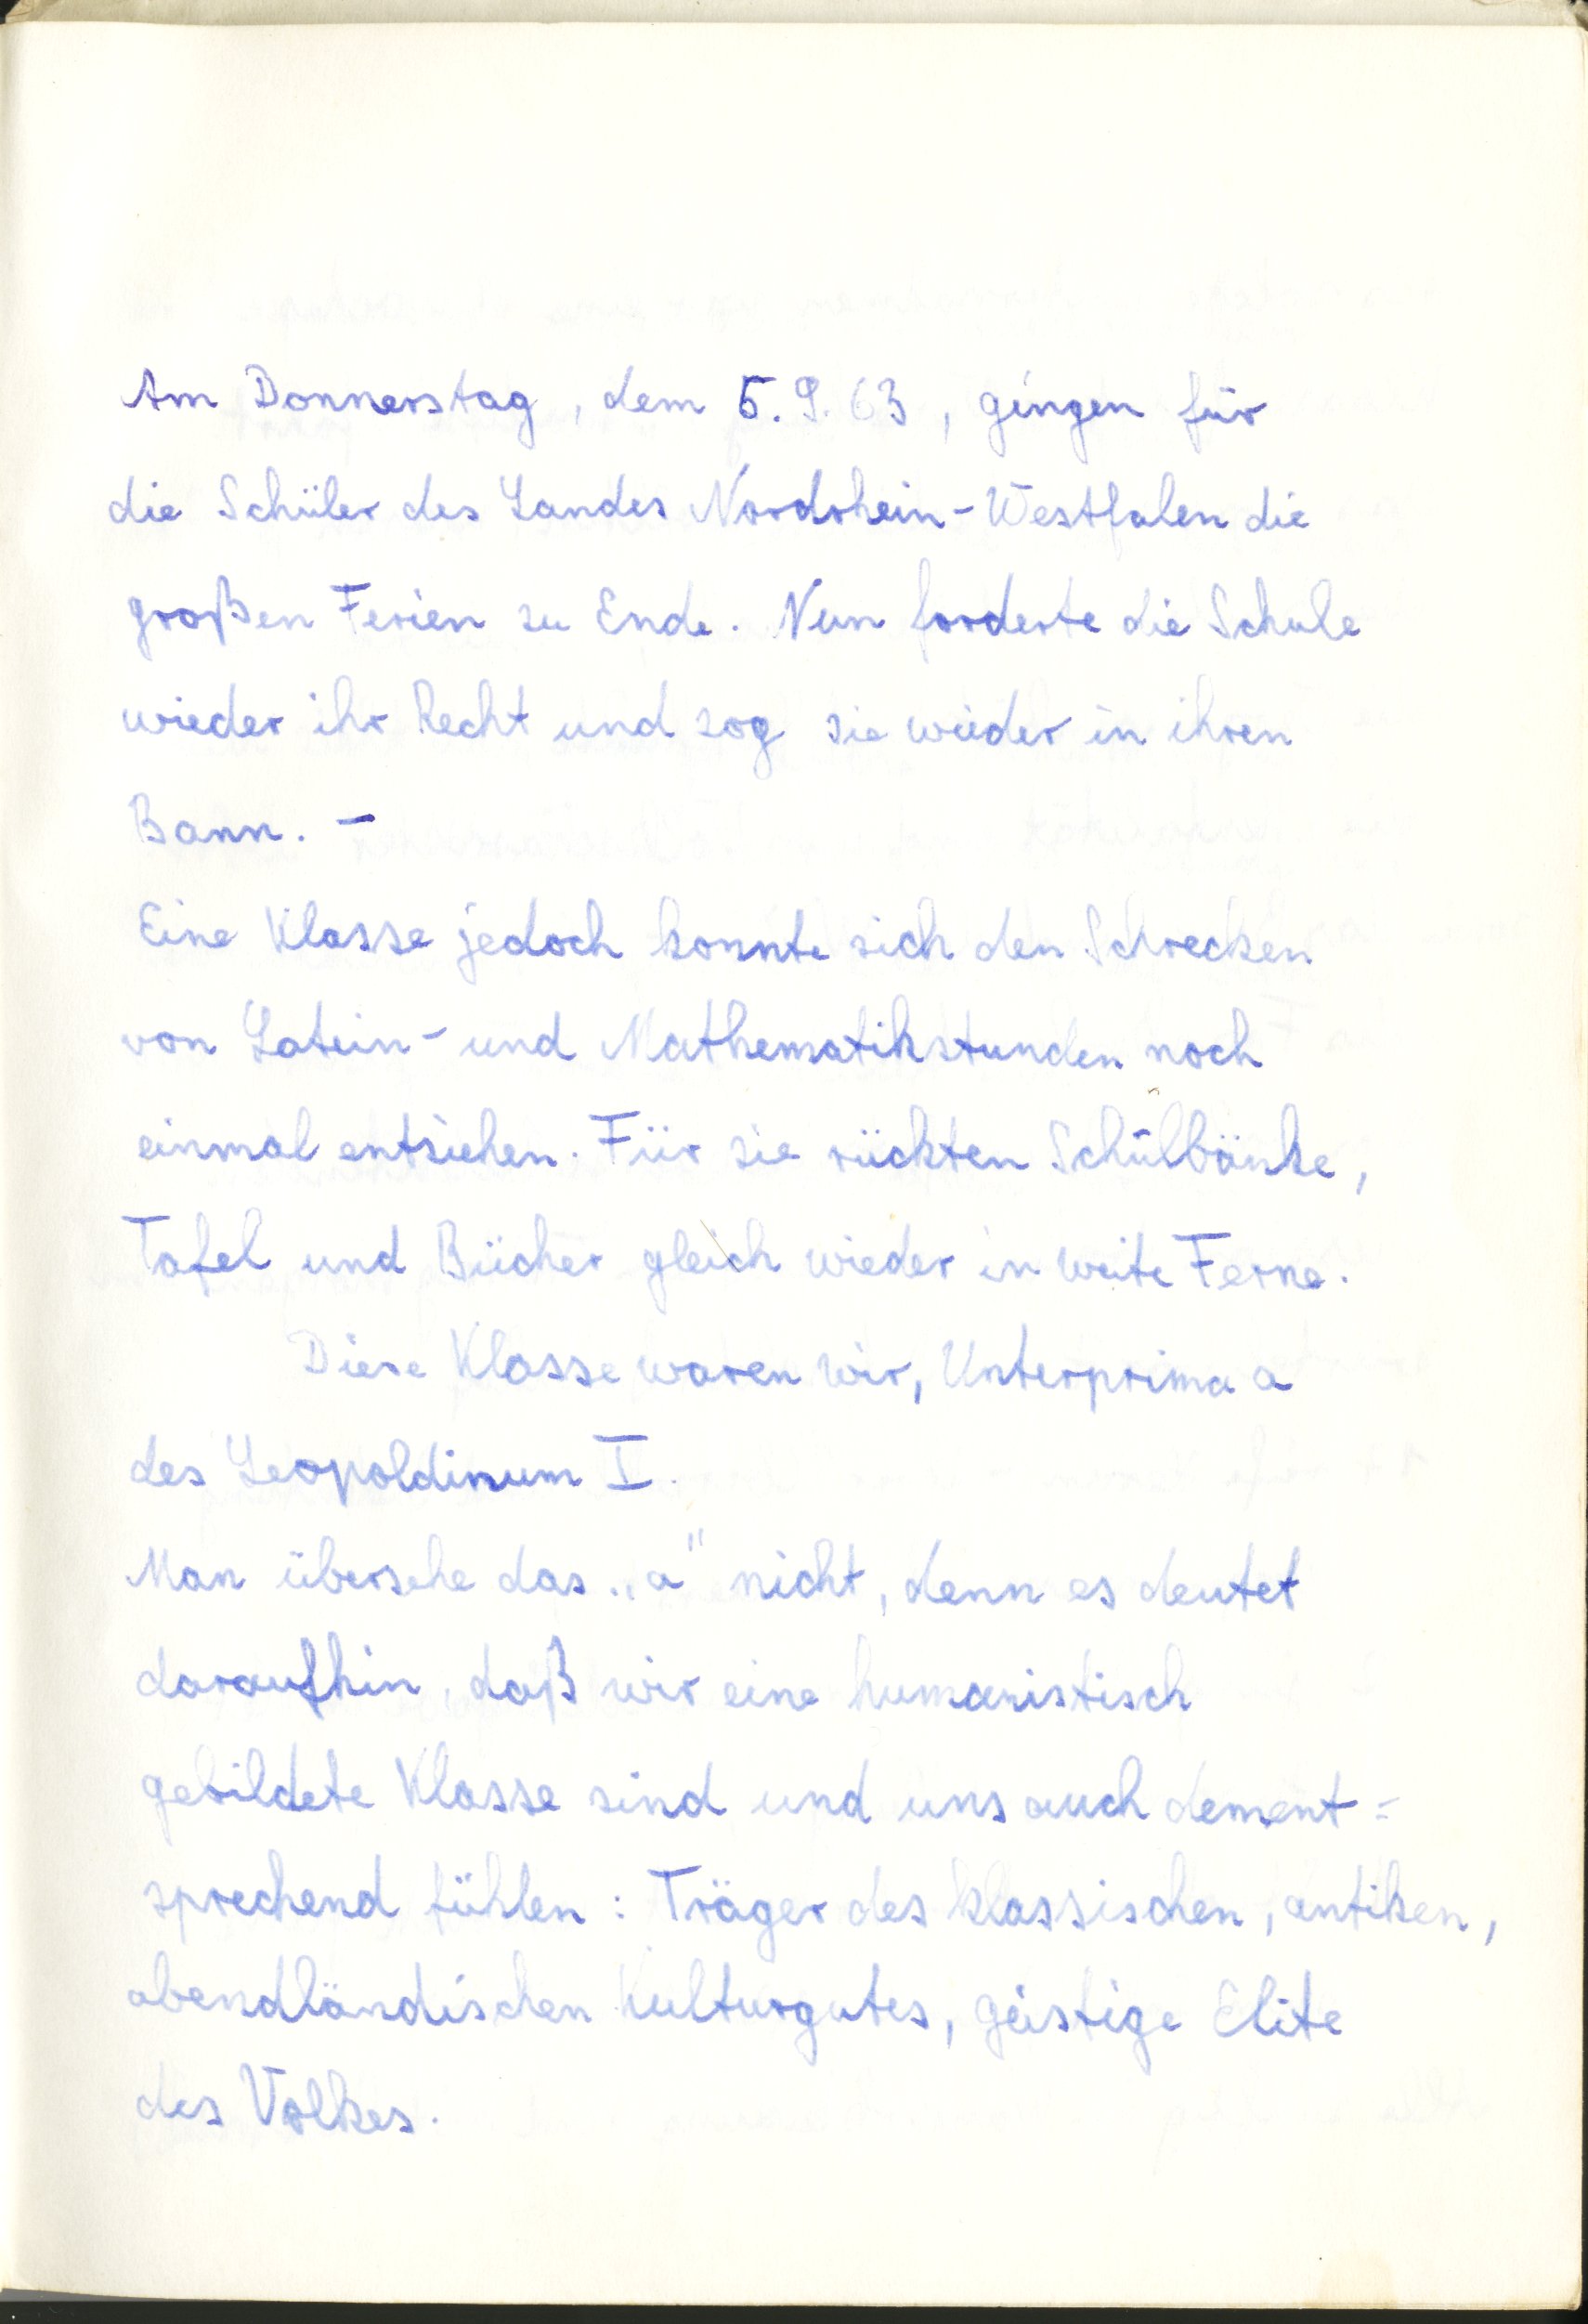 Am Donnerstag, dem 5.9.63, gingen für
die Schüler des Landes Nordrhein-Westfalen die
großen Ferien zu Ende. Nun forderte die Schule
wieder ihr Recht und zog sie wieder in ihren
Bann. –
Eine Klasse jedoch konnte sich den Schrecken
von Latein- und Mathematikstunden noch
einmal entziehen. Für sie rückten Schulbänke,
Tafel und Bücher gleich wieder in weite Ferne.
Diese Klasse waren wir, Unterprima a
des Leopoldinum I.
Man übersehe das „a" nicht, denn es deutet
daraufhin, daß wir eine humanistisch
gebildete Klasse sind und uns auch dement=
sprechend fühlen: Träger des klassischen, antiken,
abendländischen Kulturgutes, geistige Elite
des Volkes.